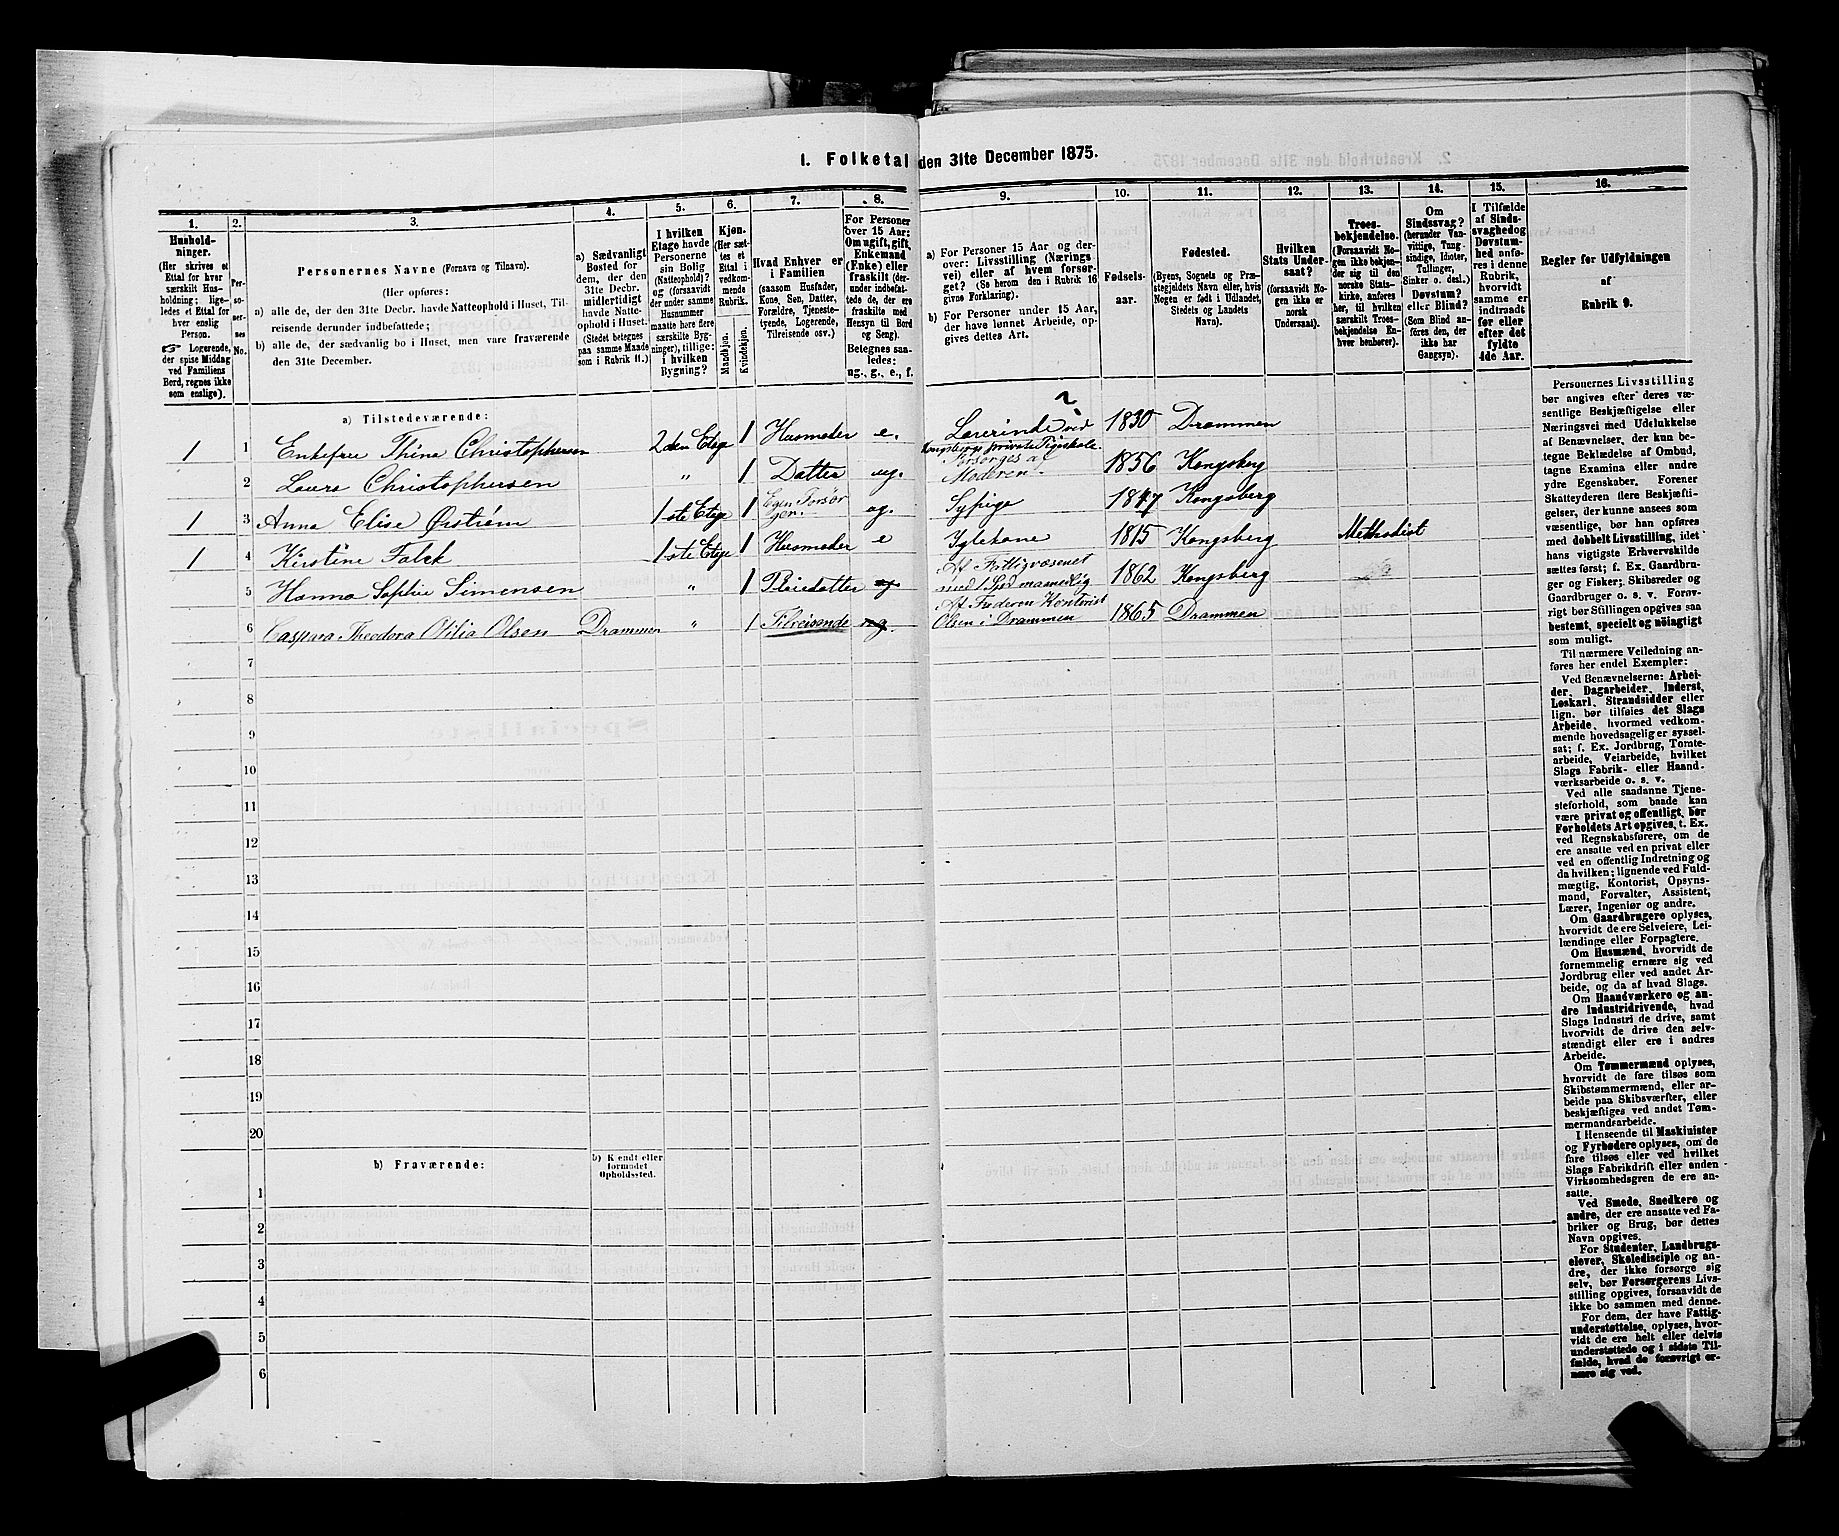 1. Folketal den 31te December 1875.
1.
2.
3.
4.
5.
6.
7.
8.
9.
10.
11.
12.
13.
14.
15.
16.
Hushold-
ninger.
(Her skrives et
Ettal for hver
særskilt Hus-
holdning; lige-
ledes et Ettal for
hver enslig
Person.
☞ Logerende,
der spise Middag
ved Familiens
Bord, regnes ikke
som enslige).
Per-
so-
ner-
nes
No.
Personernes Navne (Fornavn og Tilnavn).
(Her opføres:
a) alle de, der den 31te Decbr. havde Natteophold i Huset, Til-
reisende derunder indbefattede;
b) alle de, der sædvanlig bo i Huset, men vare fraværende
den 31te December.
a) Sædvanligt
Bosted for
dem, der den
31te Decbr.
midlertidigt
havde Natte-
ophold i Huset.
(Stedet betegnes
paa samme Maade
som i Rubrik 11.)
I hvilken
Etage havde
Personerne
sin Bolig
(Natteophold)?
og (forsaavidt
der under samme
Husnummer
maatte høre flere
særskilte Byg-
ninger), tillige:
i hvilken
Bygning?
Kjøn.
(Her sæt-
tes et
Ettal i
vedkom-
mende
Rubrik.
Mandkjøn.
Kvindekjøn.
Hvad Enhver er
i Familien
(saasom Husfader,
Kone, Søn, Datter,
Forældre, Tjeneste-
tyende, Logerende,
Tilreisende osv.)
For Personer
over 15 Aar:
Om ugift, gift,
Enkemand
(Enke) eller
fraskilt (der-
under indbefat-
tede de, der ere
fraskilte med
Hensyn til Bord
og Seng).
Betegnes saa-
ledes:
ug., g., e., f.
a) For Personer 15 Aar og der-
over: Livsstilling (Nærings-
vei) eller af hvem forsør-
get? (Se herom den i Rubrik 16
givne Forklaring).
b) For Personer under 15 Aar,
der have lønnet Arbeide, op-
gives dettes Art.
Fødsels-
aar.
Fødested.
(Byens, Sognets og Præ-
stegjeldets Navn eller, hvis
Nogen er født i Udlandet,
Stedets og Landets
Navn).
Hvilken
Stats Under-
saat?
(forsaavidt No-
gen ikke er
norsk
Undersaat).
Troes-
bekjendelse.
(Forsaavidt No-
gen ikke bekjen-
der sig til den
norske Stats-
kirke, anføres
her, til hvilken
særskilt Troes-
bekjendelse En-
hver henhører).
Om
Sindssvag?
(herunder Van-
vittige, Tung-
sindige, Idioter,
Tullinger,
Sinker o. desl.).
Døvstum?
eller Blind?
(Som Blind an-
føres den, der
ikke har
Gangsyn).
I Tilfælde
af Sinds-
svaghed og
Døvstum-
hed anfø-
res i denne
Rubrik,
hvorvidt
samme er
indtraadt
før eller
efter det
fyldte
4de Aar.
Regler for Udfyldningen
af
Rubrik 9.
a) Tilstedeværende:
1 1 Enkefru Thina Christophersen 2den Etage 1 Husmoder e. Lærerinde ved
Kongsbergs private Pigeskole 1830 Drammen
2 Laura Christophersen " 1 Datter ug. Forsørges af
Moderen 1856 Kongsberg
1 3 Anna Elise Ørstrøm 1ste Etage 1 Egen Forsør
ger. ug. Sypige 1847 Kongsberg
1 4 Kirstine Falck 1ste Etage 1 Husmoder e Iglekone 1815 Kongsberg Methodist
5 Hanna Sophie Simensen " 1 Pleiedatter ug Af Fattigvæsenet
med 1 Spd maanedlig 1862 Kongsberg
6 Caspara Theodora Otilia Olsen Drammen " 1 Tilreisende ug. Af Faderen Kontorist
Olsen i Drammen 1865 Drammen
7
8
9
10
11
12
13
14
15
16
17
18
19
20
b) Fraværende:
b) Kjendt eller
formodet
Opholdssted.
1
2
3
4
5
6
Personernes Livsstilling
bør angives efter deres væ-
sentlige Beskjæftigelse eller
Næringsvei med Udelukkelse
af Benævnelser, der kun be-
tegne Beklædelse af Ombud,
tagne Examina eller andre
ydre Egenskaber. Forener
Skatteyderen flere Beskjæfti-
gelser, der kunne ansees som
væsentlige, bør han opføres
med dobbelt Livsstilling, idet
hans vigtigste Erhvervskilde
sættes først; f. Ex. Gaardbru-
ger og Fisker; Skibsreder og
Gaardbruger o. s. v. Forøv-
rigt bør Stillingen opgives saa
bestemt, specielt og nøiagtigt
som muligt.
Til nærmere Veiledning an-
føres her endel Exempler:
Ved Benævnelserne: Arbei-
der, Dagarbeider, Inderst,
Løskarl, Strandsidder eller
lign. bør tilføies det Slags
Arbeide, hvormed vedkom-
mende hovedsagelig er syssel-
sat; f. Ex. Jordbrug, Tomte-
arbeide, Veiarbeide, hvilket
Slags Fabrik- eller Haand-
værksarbeide o. s. v.
Ved alle saadanne Tjene-
steforhold, som baade kan
være privat og offentligt, bør
Forholdets Art opgives, t. Ex.
ved Regnskabsførere, om de
ere ansatte ved en privat eller
ved en offentlig Indretning og
da hvilken; lignende ved Fuld-
mægtig, Kontorist, Opsyns-
mand, Forvalter, Assistent,
Lærer, Ingeniør og andre.
Om Gaardbrugere oplyses,
hvorvidt de ere Selveiere, Lei-
lændinge eller Forpagtere.
Om Husmænd, hvorvidt de
fornemmelig ernære sig ved
Jordbrug eller ved andet Ar-
beide, og da af hvad Slags.
Om Haandværkere og an-
dre Industridrivende, hvad
Slags Industri de drive, samt
hvorvidt de drive den selv-
stændigt eller ere i andres
Arbeide.
Om Tømmermænd oplyses,
hvorvidt de fare tilsøs som
Skibstømmermænd, eller ar-
beide paa Skibsværfter, eller
beskjæftiges ved andet Tøm-
mermandsarbeide.
I Henseende til Maskinister
og Fyrbødere oplyses, om de
fare tilsøs eller ved hvilket
Slags Fabrikdrift eller anden
Virksomhedsgren de ere an-
satte.
Ved Smede, Snedkere og
andre, der ere ansatte ved Fa-
briker og Brug, bør dettes
Navn opgives.
For Studenter, Landbrugs-
elever, Skoledisciple og an-
dre, der ikke forsørge sig
selv, bør Forsørgerens Livs-
stilling opgives, forsaavidt de
ikke bo sammen med denne.
For dem, der have Fattig-
understøttelse, oplyses, hvor-
vidt de ere helt eller delvis
understøttede og i sidste Til-
fælde, hvad de forøvrigt er-
nære sig ved.